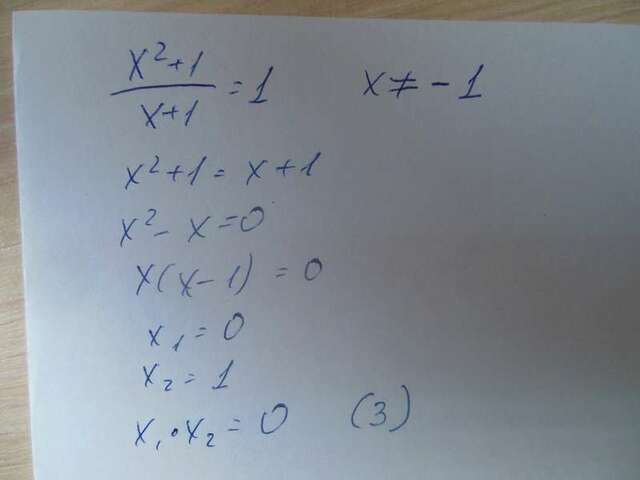 x²+1
x+1
= 1
x ≠ -1
x²+1 = x+1
x² - x = 0
x(x-1) = 0
x₁ = 0
x₂ = 1
x₁ • x₂ = 0 (3)